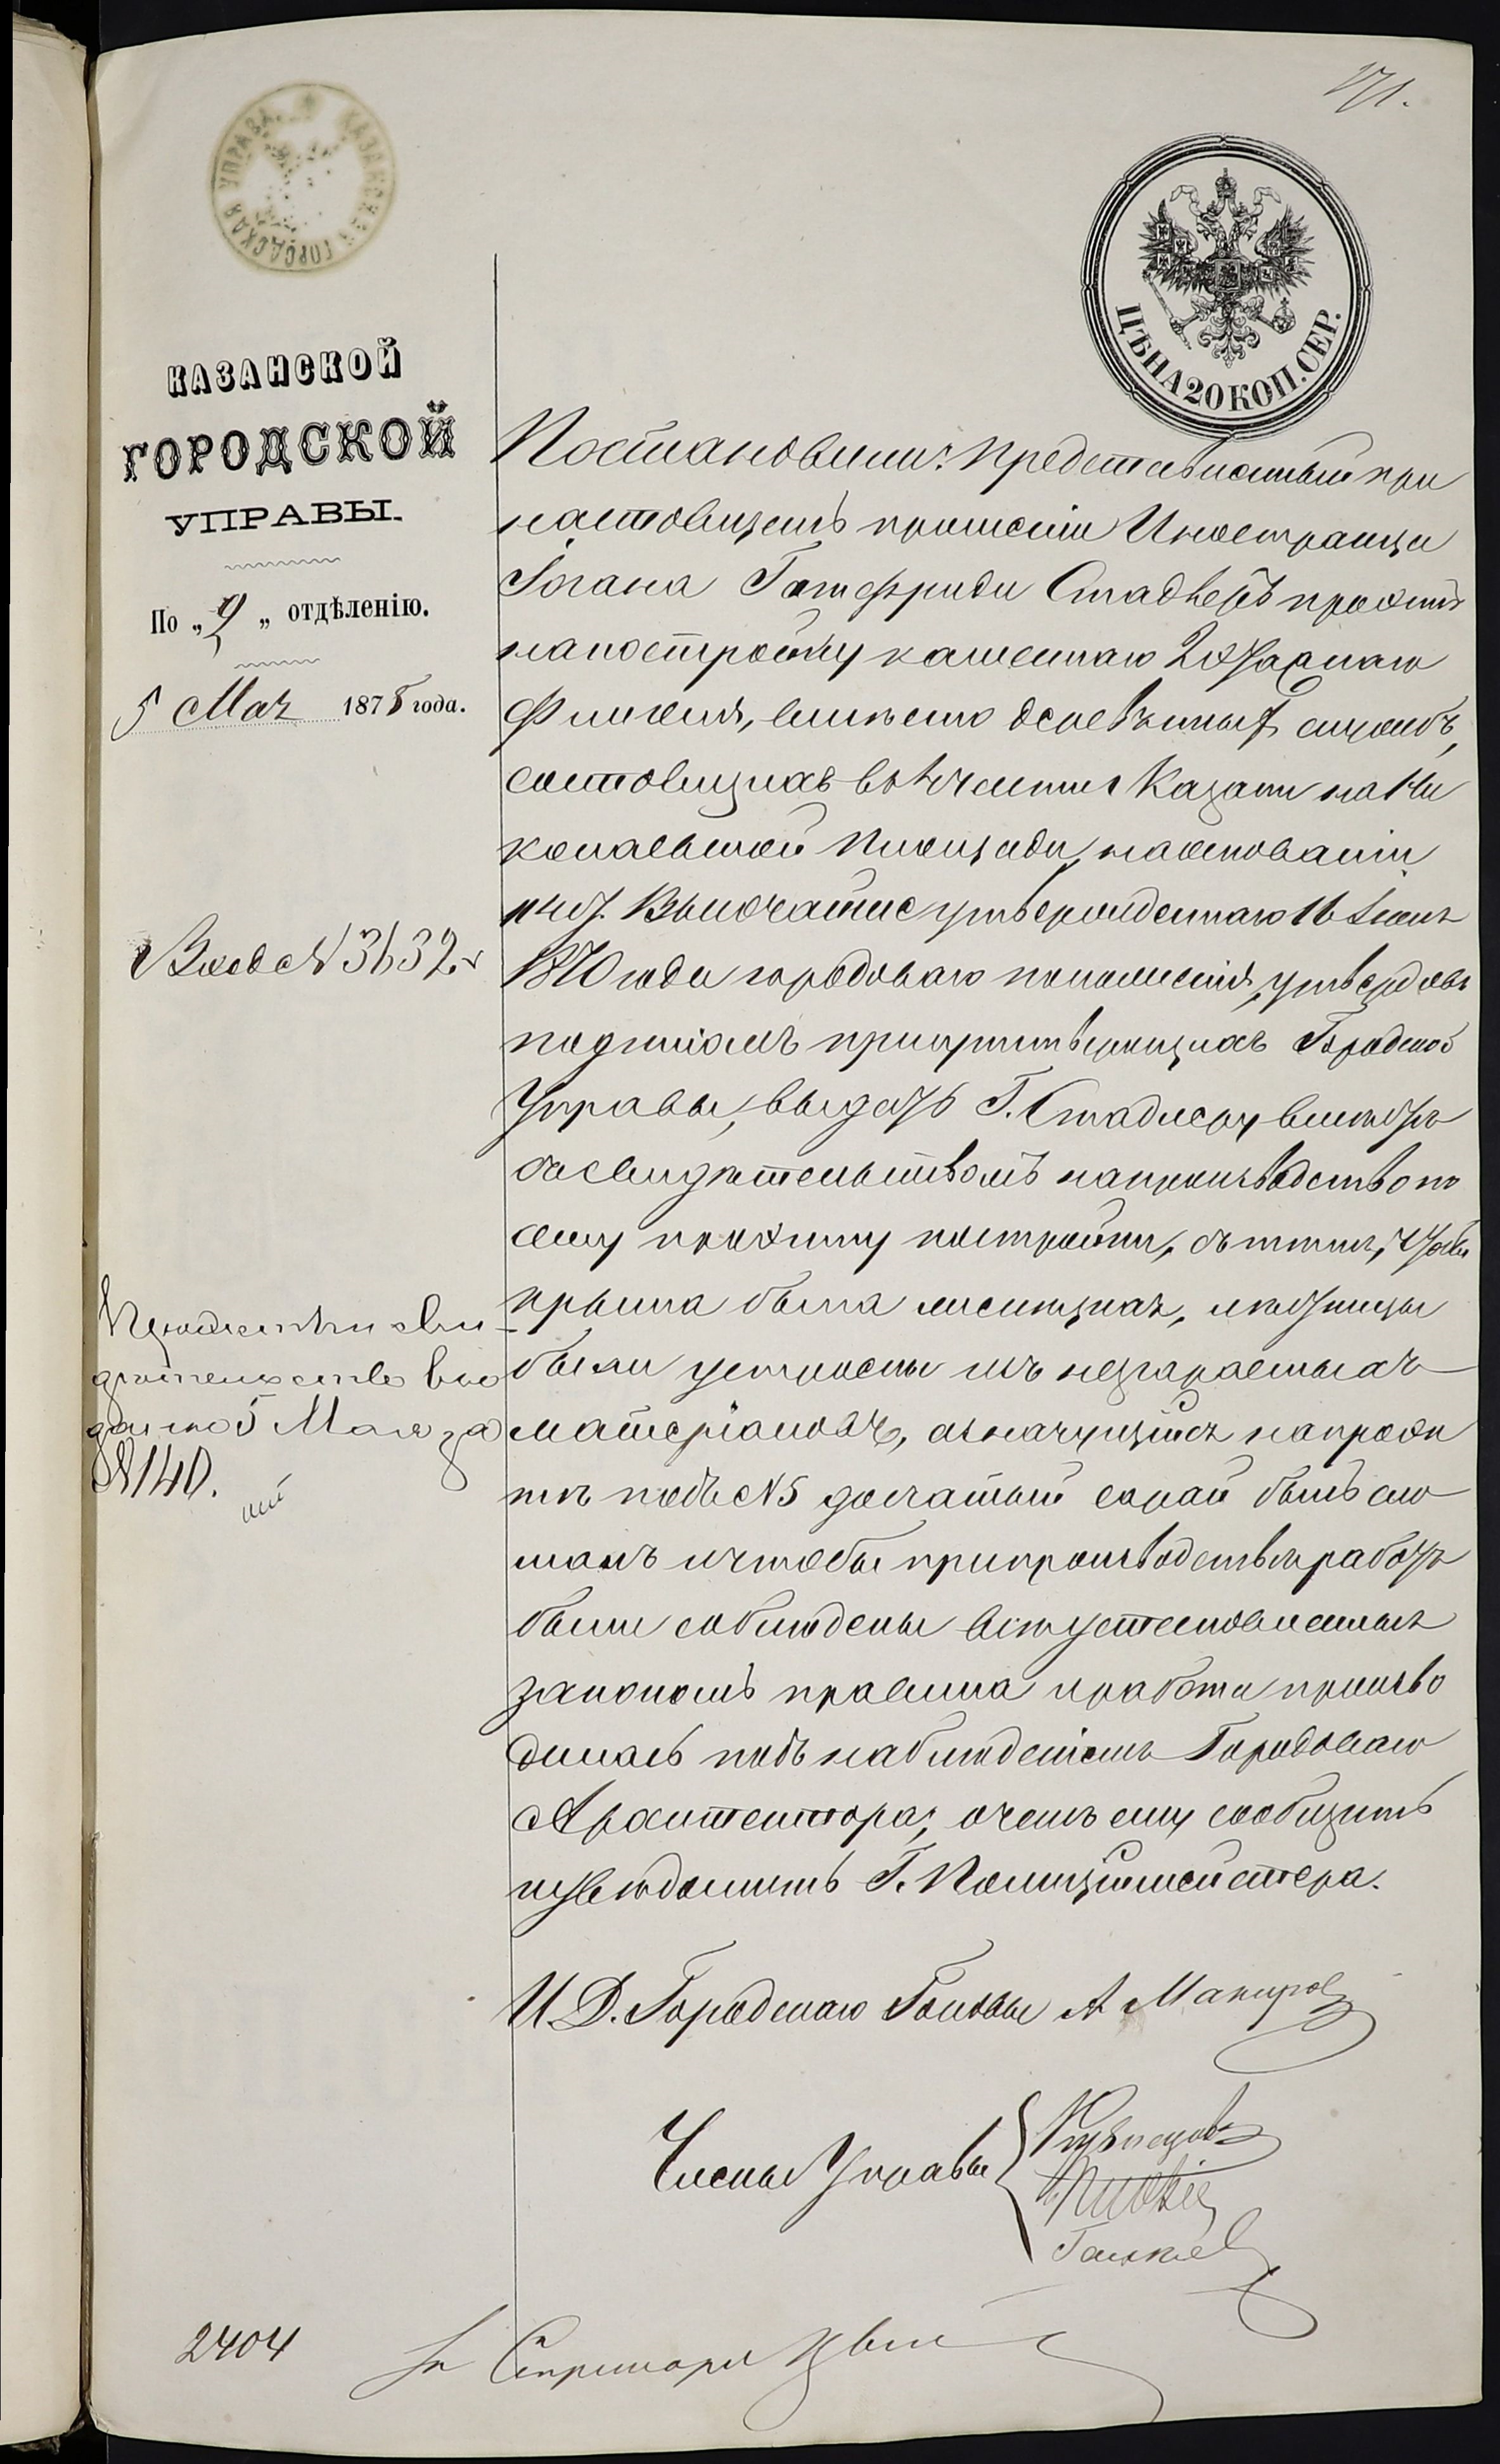 171.
КАЗАНСКАЯ ГОРОДСКАЯ УПРАВА
ЦѢНА 20 КОП. СЕР.
КАЗАНСКОЙ
ГОРОДСКОЙ
УПРАВЫ.
По „ „ отдѣленію.
5 Мая 1878 года.
Вход № 3632.
сви
дѣтельство вы
дано 5 Мая за
№ 140.
Постановили: Представленный при
настоящемъ прошеніи Иностранца
Іогана Готфрида Стадлеръ проэктъ
на постройку каменнаго 2х этажнаго
флигеля, вмѣсто деревянныхъ службъ,
состоящихъ въ части г. Казани на Ни
колаевской площади, на основаніи
Высочайше утвержденнаго 16 Іюня
1870 года городоваго положенія, утвердивъ
подписомъ присутствующихъ Городской
Управы, выдать Г. Стадлеру вмѣстѣ
со свидѣтельствомъ на производство по
сему проэкту постройки, съ тѣмъ, чтобы
крыша была лестницы
были устроены изъ незгараемыхъ
матеріаловъ, а значущійся на проэк
тѣ подъ № 5 досчатый сарай былъ сло
манъ и чтобы при производствѣ работъ
были соблюдены всѣ установленныя
закономъ правила и работа произво
дилась подъ наблюденіемъ Городоваго
Архитектора; о чемъ ему сообщить
и увѣдомить Г. Полиціймейстера.
И. Д. Городскаго Головы А
Члены Управы
Кузнецовъ
2404
Секретарь